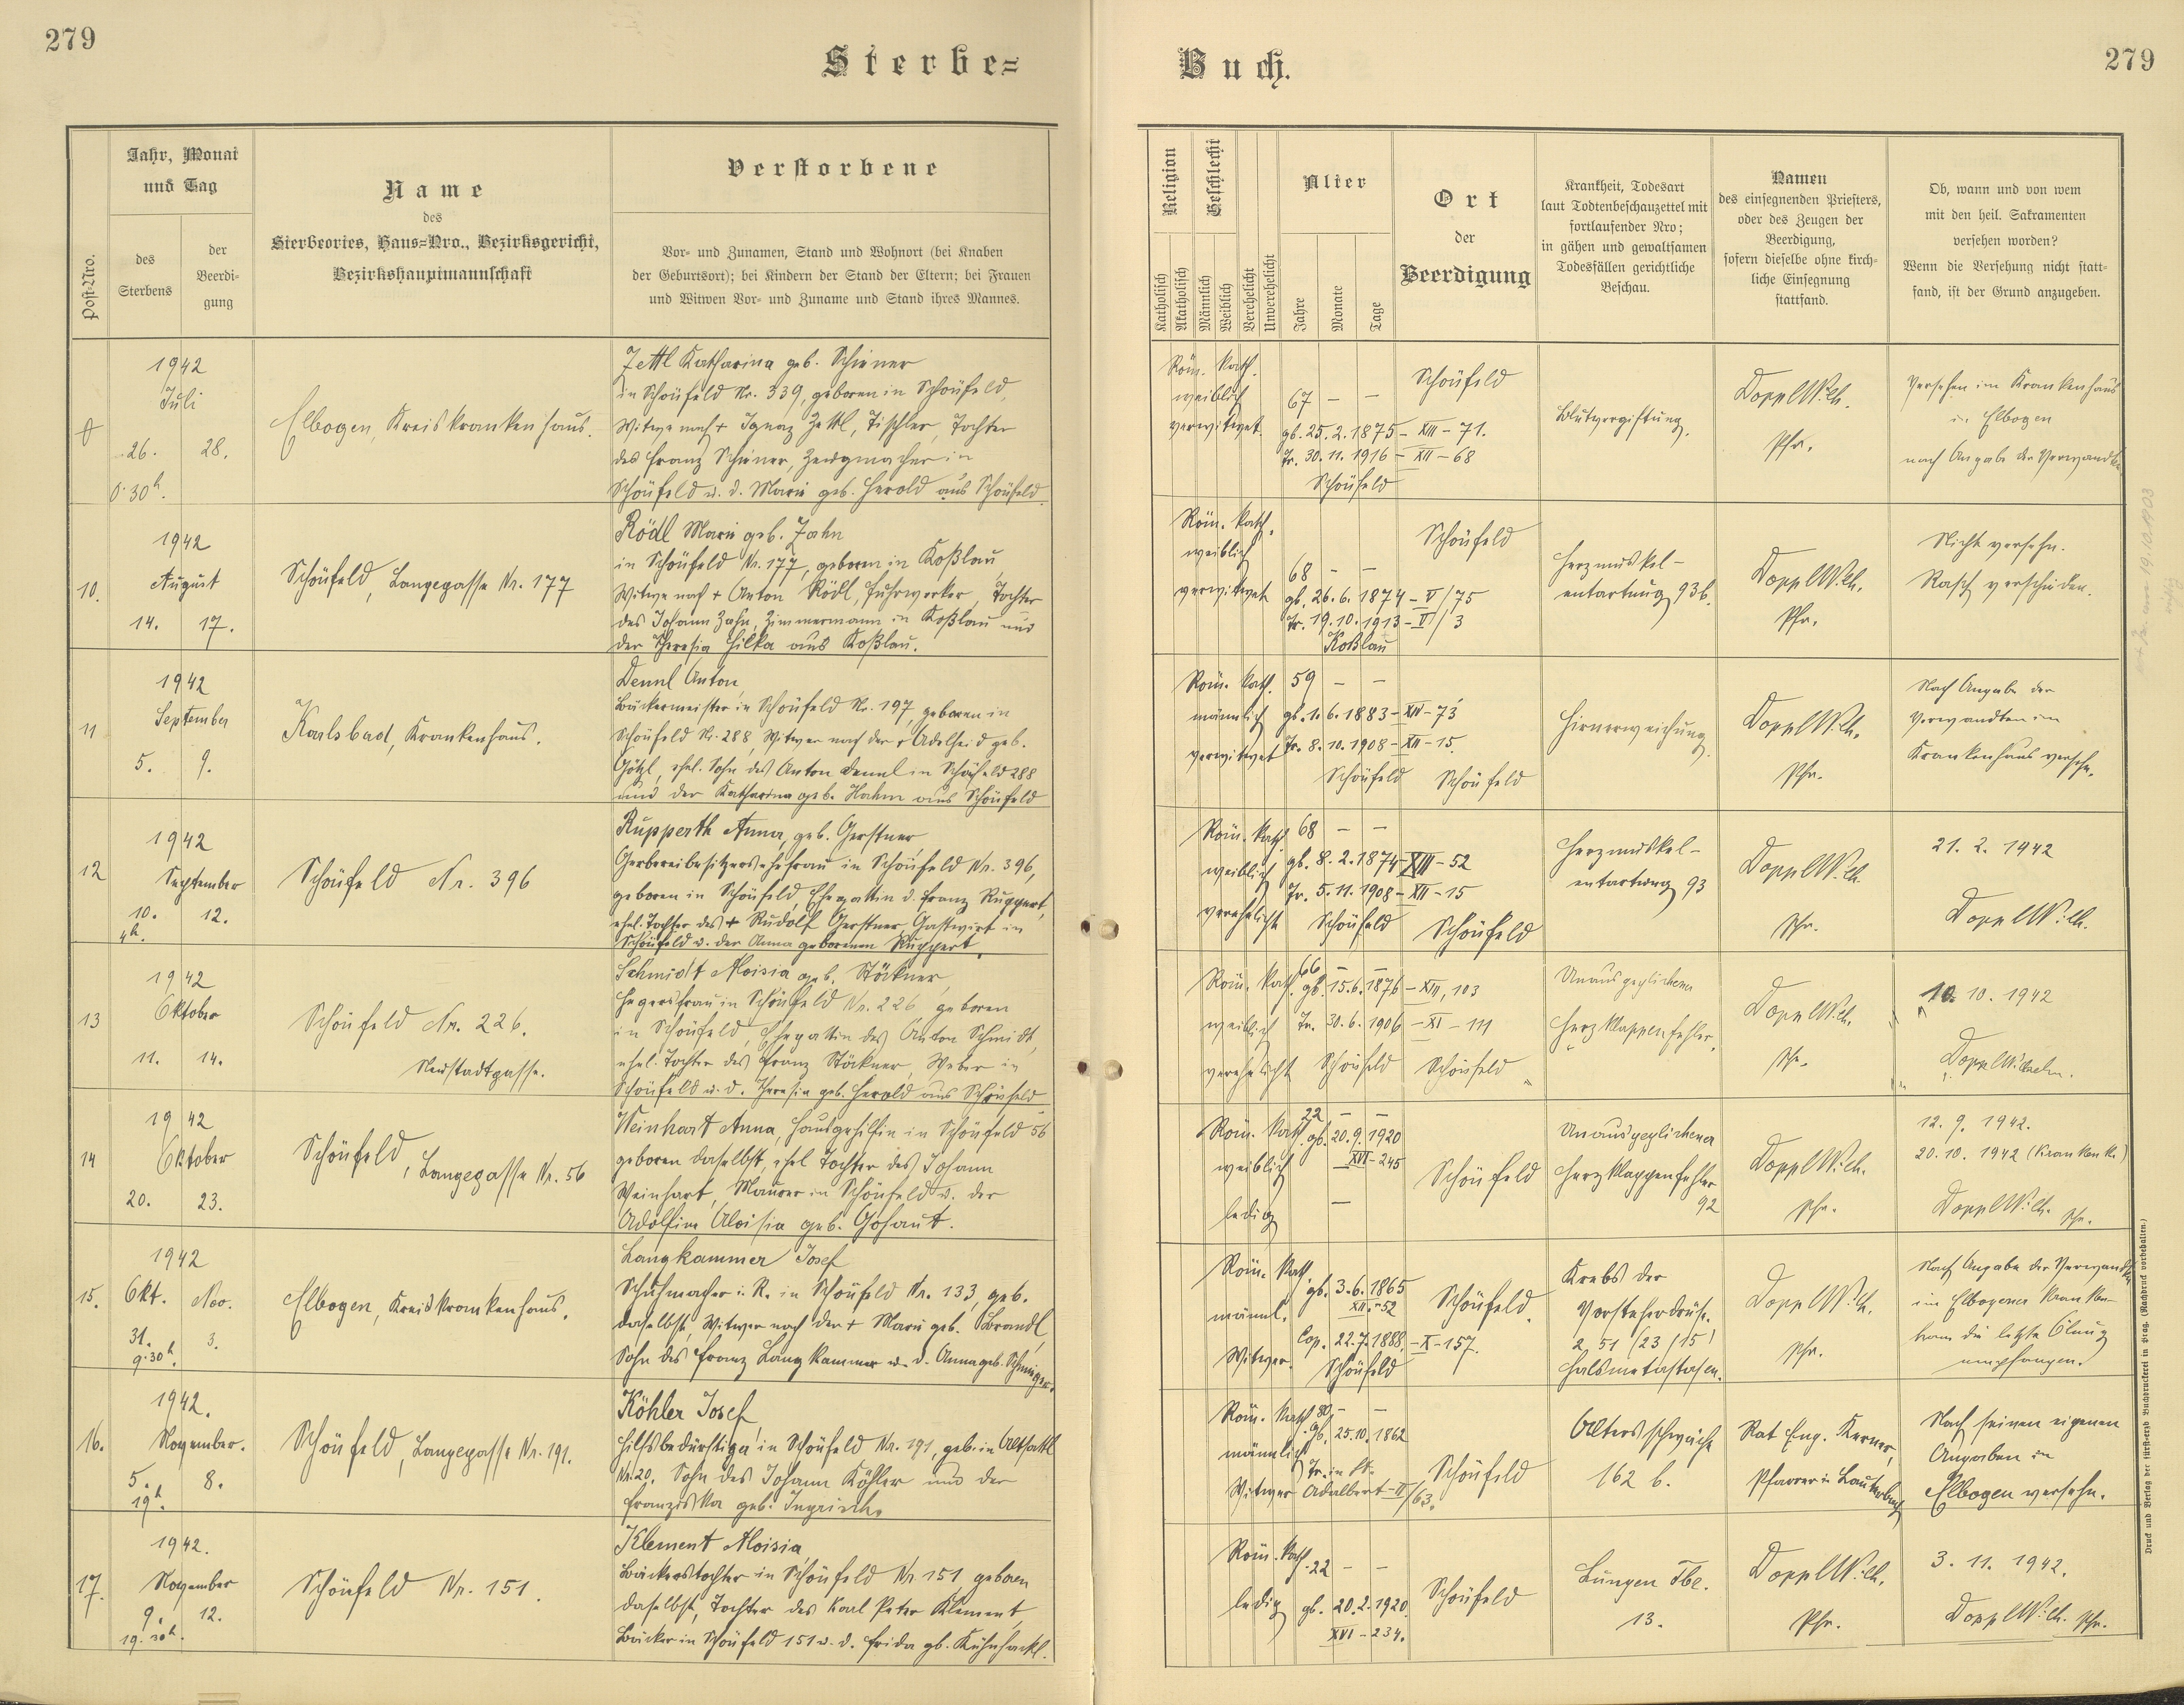 279
Sterbe=
Buch.
279
Post-Nro.
Jahr, Monat
und Tag
des
Sterbens
der
Beerdi-
gung
Name
des
Sterbeortes, Haus=Nro., Bezirksgericht,
Bezirkshauptmannschaft
Verstorbene
Vor- und Zunamen, Stand und Wohnort (bei Knaben
der Geburtsort); bei Kindern der Stand der Eltern; bei Frauen
und Witwen Vor- und Zuname und Stand ihres Mannes.
Religion
Katholisch
Akatholisch
Geschlecht
Männlich
Weiblich
Verehelicht
Unverehelicht
Alter
Jahre
Monate
Tage
Ort
der
Beerdigung
Krankheit, Todesart
laut Todtenbeschauzettel mit
fortlaufender Nro;
in gähen und gewaltsamen
Todesfällen gerichtliche
Beschau.
Namen
des einsegnenden Priesters,
oder des Zeugen der
Beerdigung,
sofern dieselbe ohne kirch-
liche Einsegnung
stattfand.
Ob, wann und von wem
mit den heil. Sakramenten
versehen worden?
Wenn die Versehung nicht statt-
fand, ist der Grund anzugeben.
1942
Juli
26. 28.
0.30h.
Elbogen, Kreiskrankenhaus.
Zettl Katharina geb. Schiener
in Schönfeld Nr. 339, geboren in Schönfeld,
Witwe nach + Ignaz Zettl, Tischler, Tochter
des Franz Schiener, Zeugmacher in
Schönfeld u. d. Marie geb. Herold aus Schönfeld.
Röm. kath.
weiblich
verwitwet
67 — —
gb. 25.2.1875 – XIII – 71.
Tr. 30.11.1916 – XII – 68
Schönfeld
Schönfeld
Blutvergiftung.
Doppl Wilh.
Pfr.
Versehen im Krankenhaus
in Elbogen
nach Angabe der Verwandten
10.
1942
August
14. 17.
Schönfeld, Langegasse Nr. 177
Rödl Marie geb. Zahn
in Schönfeld Nr. 177, geboren in Koßlau,
Witwe nach + Anton Rödl, Fuhrwerker, Tochter
des Johann Zahn, Zimmermann in Koßlau und
der Theresia Hilka aus Koßlau.
Röm. kath.
weiblich
verwitwet
68 — —
gb. 26.6.1874 – V/75
Tr. 19.10.1913 – V/3
Koßlau
Schönfeld
Herzmuskel-
entartung 93b.
Doppl Wilh.
Pfr.
Nicht versehn.
Rasch verschieden.
11
1942
September
5. 9.
Karlsbad, Krankenhaus.
Dennl Anton,
Bäckermeister in Schönfeld Nr. 197, geboren in
Schönfeld Nr. 288, Witwer nach der + Adelheid geb.
Götzl, ehel. Sohn des Anton Dennl in Schönfeld 288
und der Katharina geb. Hahn aus Schönfeld
Röm. kath.
männlich
verwitwet
59 — —
gb. 1.6.1883 – XIV – 73
Tr. 8.10.1908 – XII – 15.
Schönfeld
Schönfeld
Hirnerweichung.
Doppl Wilh.
Pfr.
Nach Angabe der
Verwandten im
Krankenhaus versehn.
12
1942
September
10. 12.
4h.
Schönfeld Nr. 396
Rupperth Anna, geb. Gerstner,
Gerbereibesitzersehefrau in Schönfeld Nr. 396,
geboren in Schönfeld, Ehegattin d. Franz Ruppert,
ehel. Tochter des + Rudolf Gerstner, Gastwirt in
Schönfeld u. der Anna geborenen Ruppert.
Röm. kath.
weiblich
verehelicht
68 — —
gb. 8.2.1874 – XIII – 52
Tr. 5.11.1908 – XII – 15
Schönfeld
Schönfeld
Herzmuskel-
entartung 93
Doppl Wilh.
Pfr.
21. 2. 1942
Doppl Wilh.
13
1942
Oktober
11. 14.
Schönfeld Nr. 226.
Neustadtgasse.
Schmidt Aloisia geb. Stöckner,
Hegersfrau in Schönfeld Nr. 226, geboren
in Schönfeld, Ehegattin des Anton Schmidt,
ehel. Tochter des Franz Stöckner, Weber in
Schönfeld u. d. Theresia geb. Herold aus Schönfeld
Röm. kath.
weiblich
verehelicht
66 — —
gb. 15.6.1876 – XIII, 103
Tr. 30.6.1906 – XI – 111
Schönfeld
Schönfeld
Unausgeglichener
Herzklappenfehler.
Doppl Wilh.
Pfr.
10. 10. 1942
Doppl Wilhelm.
14
1942
Oktober
20. 23.
Schönfeld, Langegasse Nr. 56
Weinhart Anna, Hausgehilfin in Schönfeld 56
geboren daselbst, ehel. Tochter des Johann
Weinhart, Maurer in Schönfeld u. der
Adolfine Aloisia geb. Gohaut.
Röm. kath.
weiblich
ledig
22 — —
gb. 20.9.1920
XVI – 245
—
Schönfeld
Unausgeglichener
Herzklappenfehler
92
Doppl Wilh.
Pfr.
12. 9. 1942.
20. 10. 1942 (Krankenk.)
Doppl Wilh. Pfr.
15.
1942
Okt. Nov.
31. 3.
9.30h.
Elbogen, Kreiskrankenhaus.
Langkammer Josef
Schuhmacher i. R. in Schönfeld Nr. 133, geb.
daselbst, Witwer nach der + Marie geb. Brandl,
Sohn des Franz Langkammer u. d. Anna geb.
Röm. kath.
männl.
Witwer.
gb. 3.6.1865
XII – 52
Cop. 22.7.1888. – X – 157.
Schönfeld
Schönfeld.
Krebs der
Vorsteherdrüse.
2 51 /23 /15/
Halsmetastasen.
Doppl Wilh.
Pfr.
Nach Angabe der Verwandten
im Elbogener Kranken-
haus die letzte Ölung
empfangen.
16.
1942.
November.
5. 8.
19h.
Schönfeld, Langegasse Nr. 191.
Köhler Josef,
Hilfsbedürftiger in Schönfeld Nr. 191, geb. in Altsattl
Nr. 20, Sohn des Johann Köhler und der
Franziska geb. Ingrisch.
Röm. kath.
männlich
Witwer
80 — —
gb. 25.10.1862
Tr. in St.
Adalbert – II/63.
Schönfeld
Altersschwäche
162 b.
Rat Eug. Kerner,
Pfarrer in Lauterbach
Nach seinen eigenen
Angaben in
Elbogen versehn.
17.
1942.
November
9. 12.
19.30h.
Schönfeld Nr. 151.
Klement Aloisia,
Bäckerstochter in Schönfeld Nr. 151 geboren
daselbst, Tochter des Karl Peter Klement,
Bäcker in Schönfeld 151 u. d. Frida gb. Kühnhackl.
Röm. kath.
ledig
22 — —
gb. 20.2.1920.
XVI – 234.
Schönfeld
Lungen Tbc.
13.
Doppl Wilh.
Pfr.
3. 11. 1942.
Doppl Wilh. Pfr.
19.10.1903
Druck und Verlag der fürsterzb. Buchdruckerei in Prag. (Nachdruck vorbehalten.)